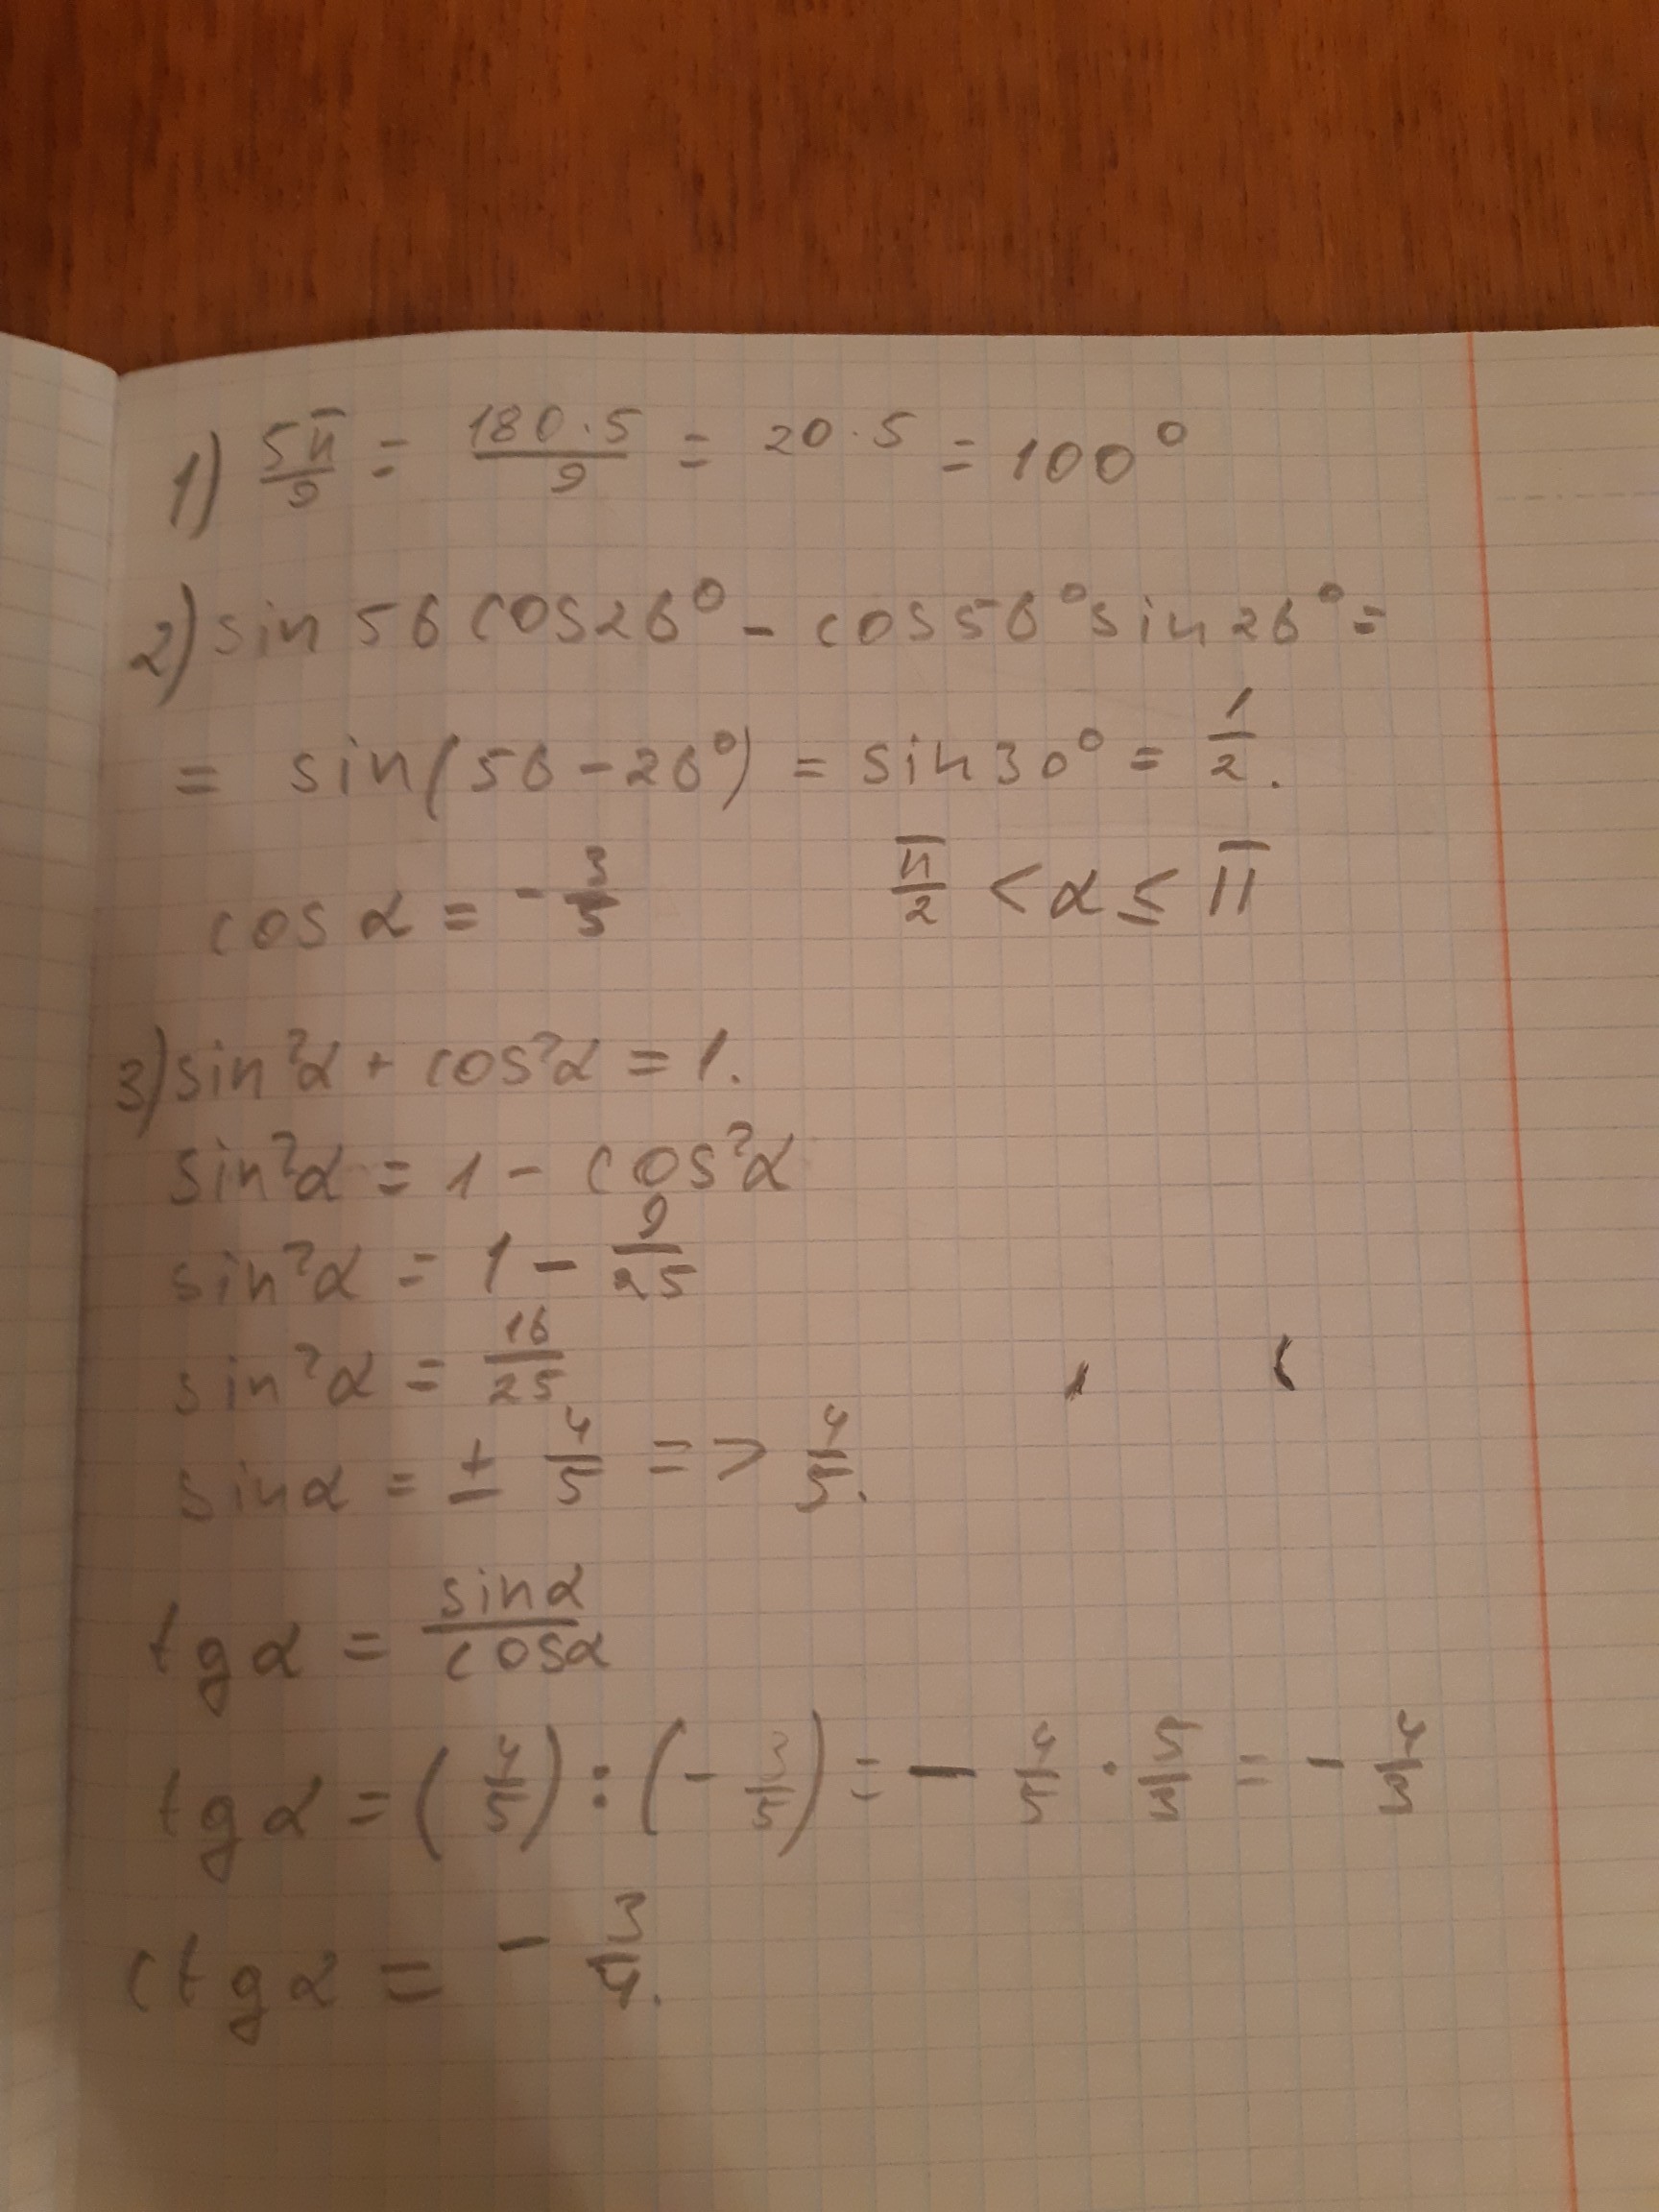 1) 5π/9 = 180·5/9 = 20·5 = 100°
2) sin 56 cos 26° - cos 56° sin 26° =
= sin(56 - 26°) = sin 30° = 1/2.
cos α = - 3/5 π/2 < α ≤ π
3) sin²α + cos²α = 1.
sin²α = 1 - cos²α
sin²α = 1 - 9/25
sin²α = 16/25
sin α = ± 4/5 => 4/5.
tg α = sin α/cos α
tg α = (4/5) : (- 3/5) = - 4/5 · 5/3 = - 4/3
ctg α = - 3/4.